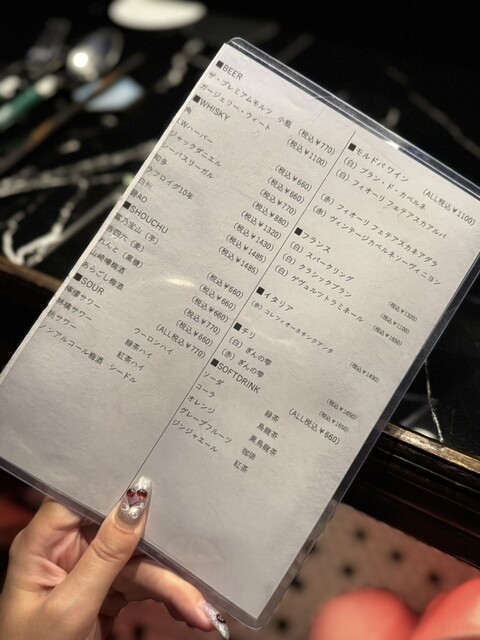 ■BEER
ザ・プレミアムモルツ 小瓶 (税込¥770)
ガージェリー・ヴィート (税込¥1100)
■WHISKY
(税込¥660)
I.Wハーパー (税込¥660)
ジャックダニエル (税込¥770)
シーバスリーガル (税込¥880)
知多 (税込¥1320)
ラフロイグ10年 (税込¥1430)
白州 (税込¥1485)
響AO (税込¥1485)
■SHOUCHU
富乃宝山（芋） (税込¥660)
吉四六（麦） (税込¥660)
れんと（黒糖） (税込¥770)
山崎樽梅酒 (税込¥660)
あらごし梅酒
■SOUR (ALL税込¥770)
檸檬サワー ウーロンハイ
サワー 緑茶ハイ
サワー 紅茶ハイ
ノンアルコール梅酒 シードル
■モルドバワイン (ALL税込¥1100)
(白) ブラン・ド・カベルネ
(白) フィオーリフェテアスカアルバ
(赤) フィオーリフェテアスカネアグラ
(赤) ヴィンテージカベルネソーヴィニヨン
■フランス
(白) スパークリング (税込¥1320)
(白) クラシックブラン (税込¥1100)
(白) ゲヴェルツトラミネール (税込¥1650)
■イタリア
(赤) コレフィオーネキングアンダ (税込¥1430)
■チリ
(白) ぎんの雫 (税込¥1650)
(赤) ぎんの雫 (税込¥1650)
■SOFTDRINK (ALL税込¥660)
ソーダ 緑茶
コーラ 烏龍茶
オレンジ 黒烏龍茶
グレープフルーツ 珈琲
ジンジャエール 紅茶